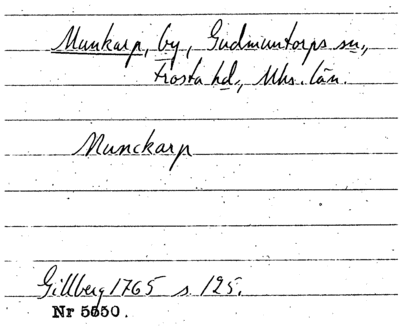 Munkarp, by, Gudmuntorps sn.,
Frosta hd., Mhs. län.
Munckarp
Gillberg 1765 s. 125.
Nr 5550.